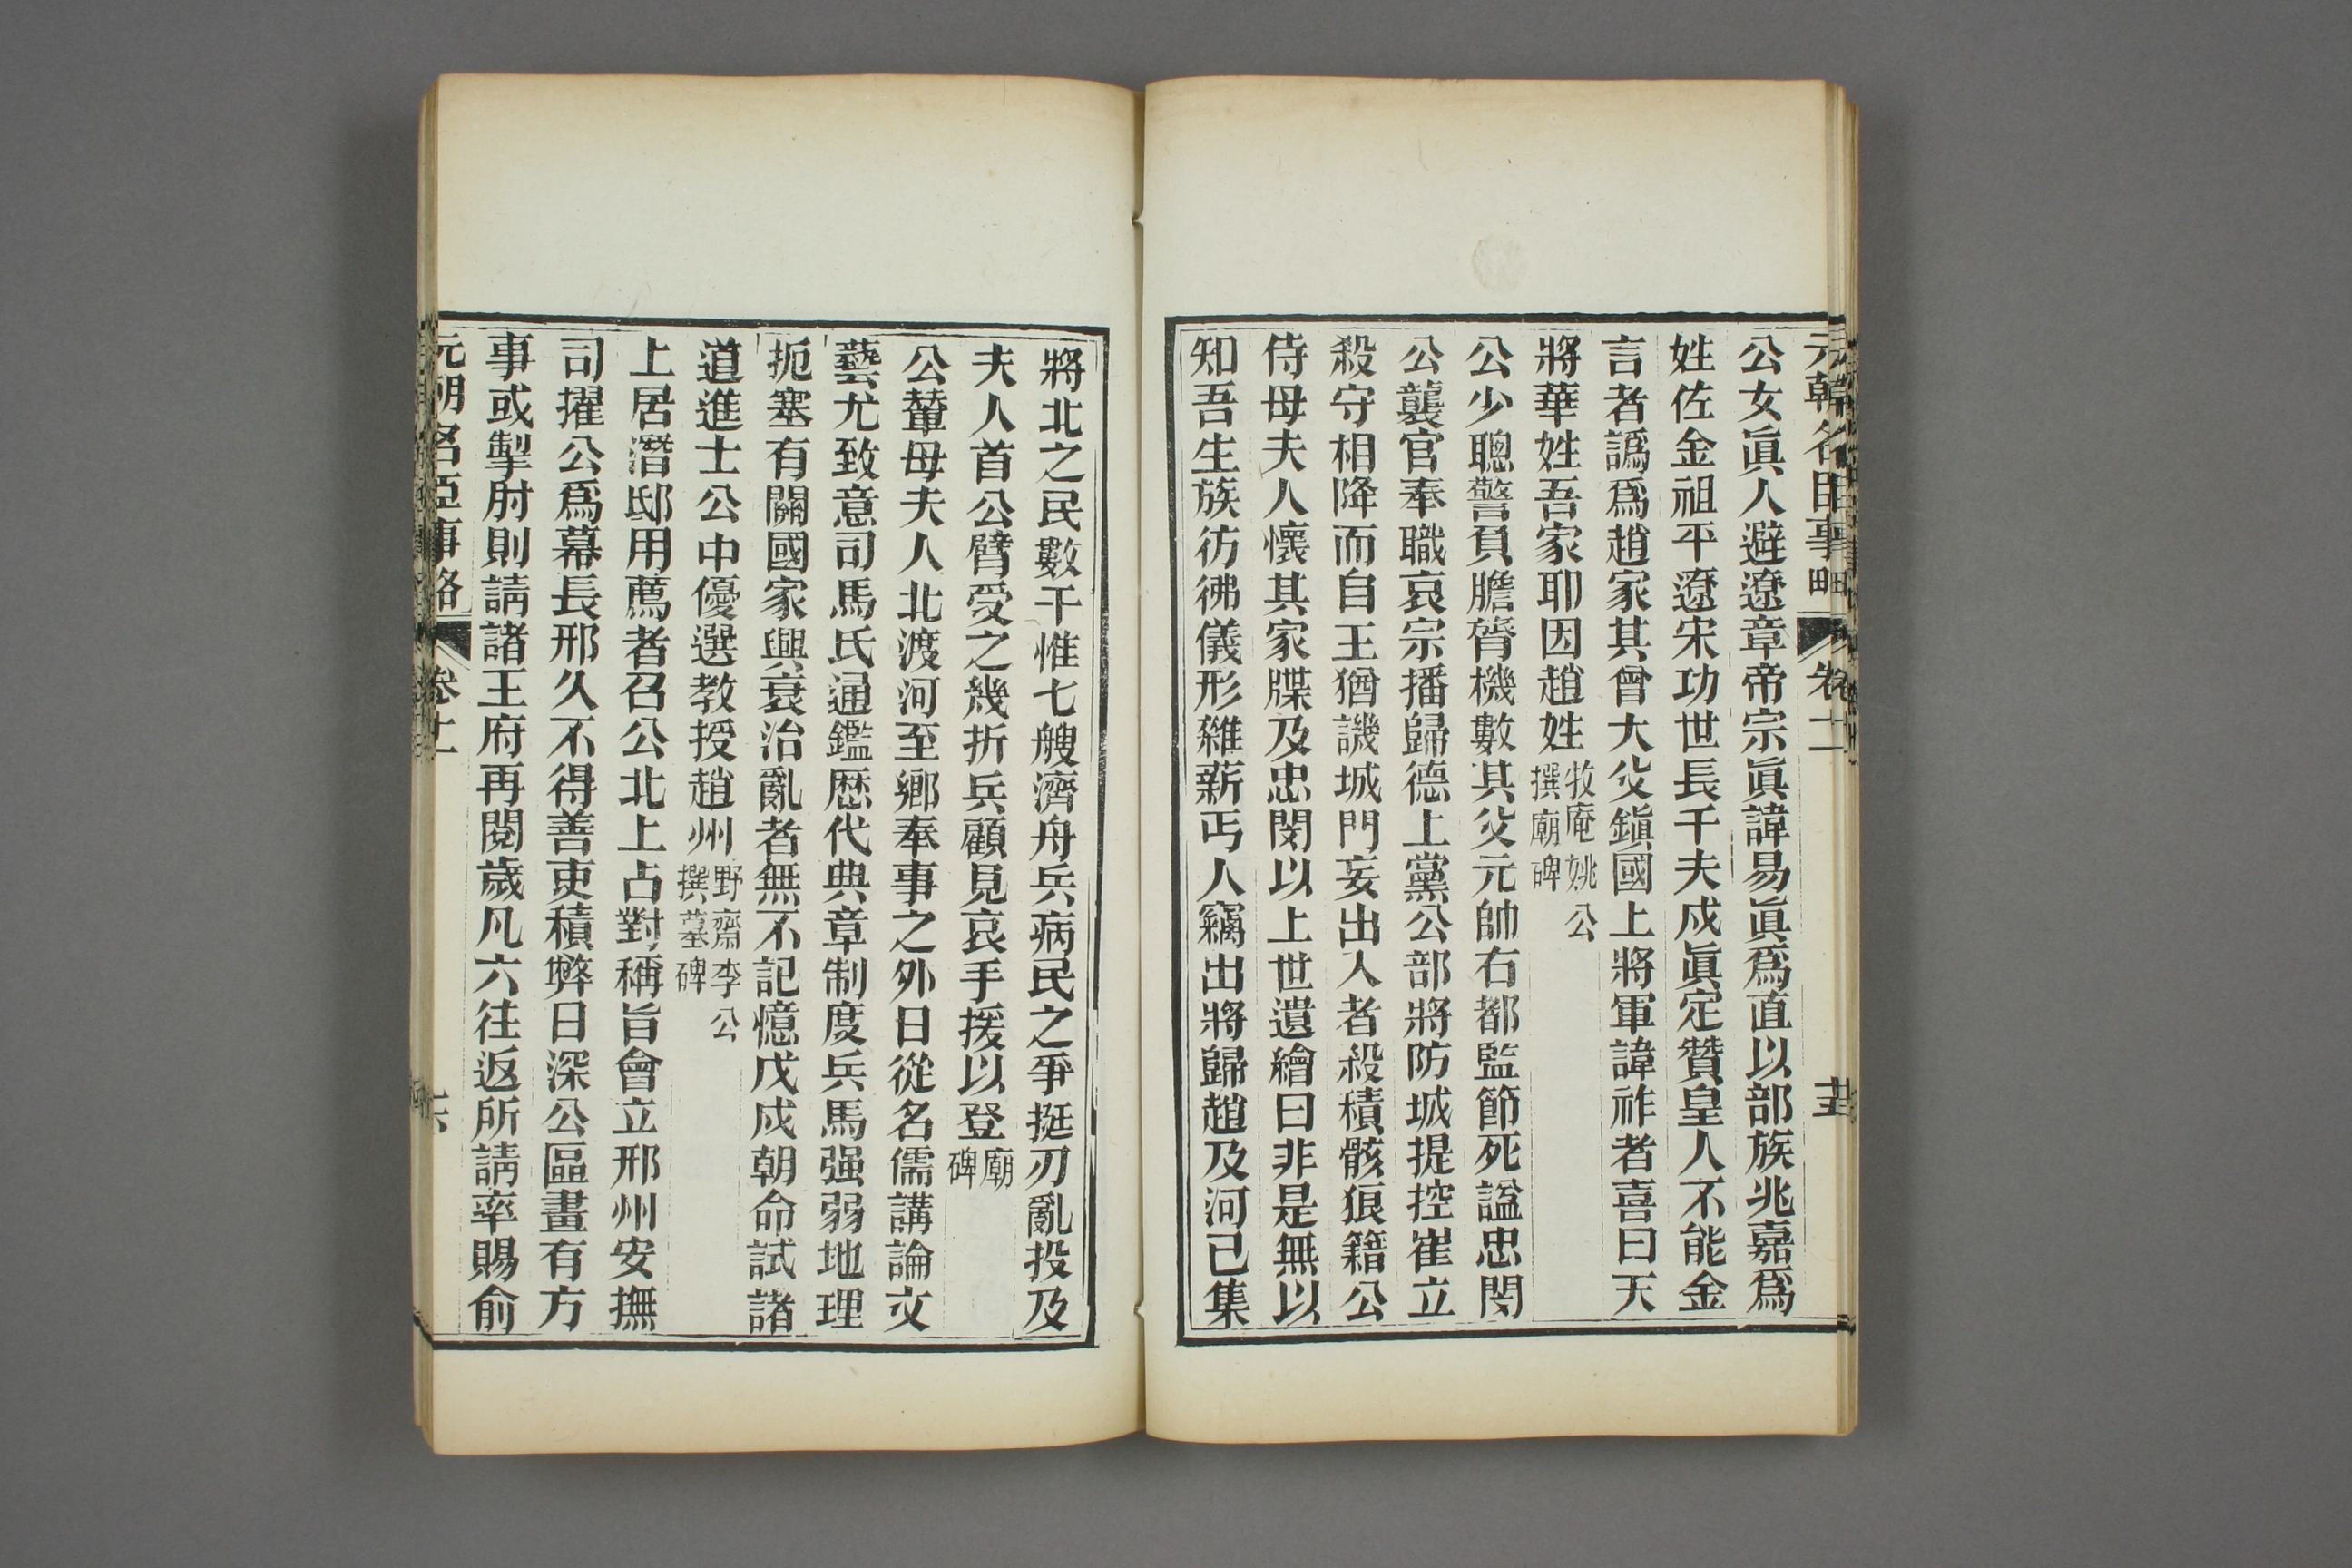 元朝名臣事略 卷十一
公女眞人避遼章帝宗眞諱易眞爲直以部族兆嘉爲
姓佐金祖平遼宋功世長千夫戍眞定贊皇人不能金
言者譌爲趙家其曾大父鎭國上將軍諱祚者喜曰天
將華姓吾家耶因趙姓牧庵姚公撰廟碑
公少聰警負膽膂機數其父元帥右都監節死諡忠閔
公襲官奉職哀宗播歸德上黨公部將防城提控崔立
殺守相降而自王猶譏城門妄出人者殺積骸狼籍公
侍母夫人懷其家牒及忠閔以上世遺繪曰非是無以
知吾生族彷彿儀形雜薪丐人竊出將歸趙及河已集
將北之民數千惟七艘濟舟兵病民之爭挺刃亂投及
夫人首公臂受之幾折兵顧見哀手援以登廟碑
公輦母夫人北渡河至鄉奉事之外日從名儒講論文
藝尤致意司馬氏通鑑歷代典章制度兵馬强弱地理
扼塞有關國家興衰治亂者無不記憶戊戌朝命試諸
道進士公中優選教授趙州野齋李公撰墓碑
上居潛邸用薦者召公北上占對稱旨會立邢州安撫
司擢公爲幕長邢久不得善吏積弊日深公區畫有方
事或掣肘則請諸王府再閱歲凡六往返所請率賜俞
元朝名臣事略 卷十一